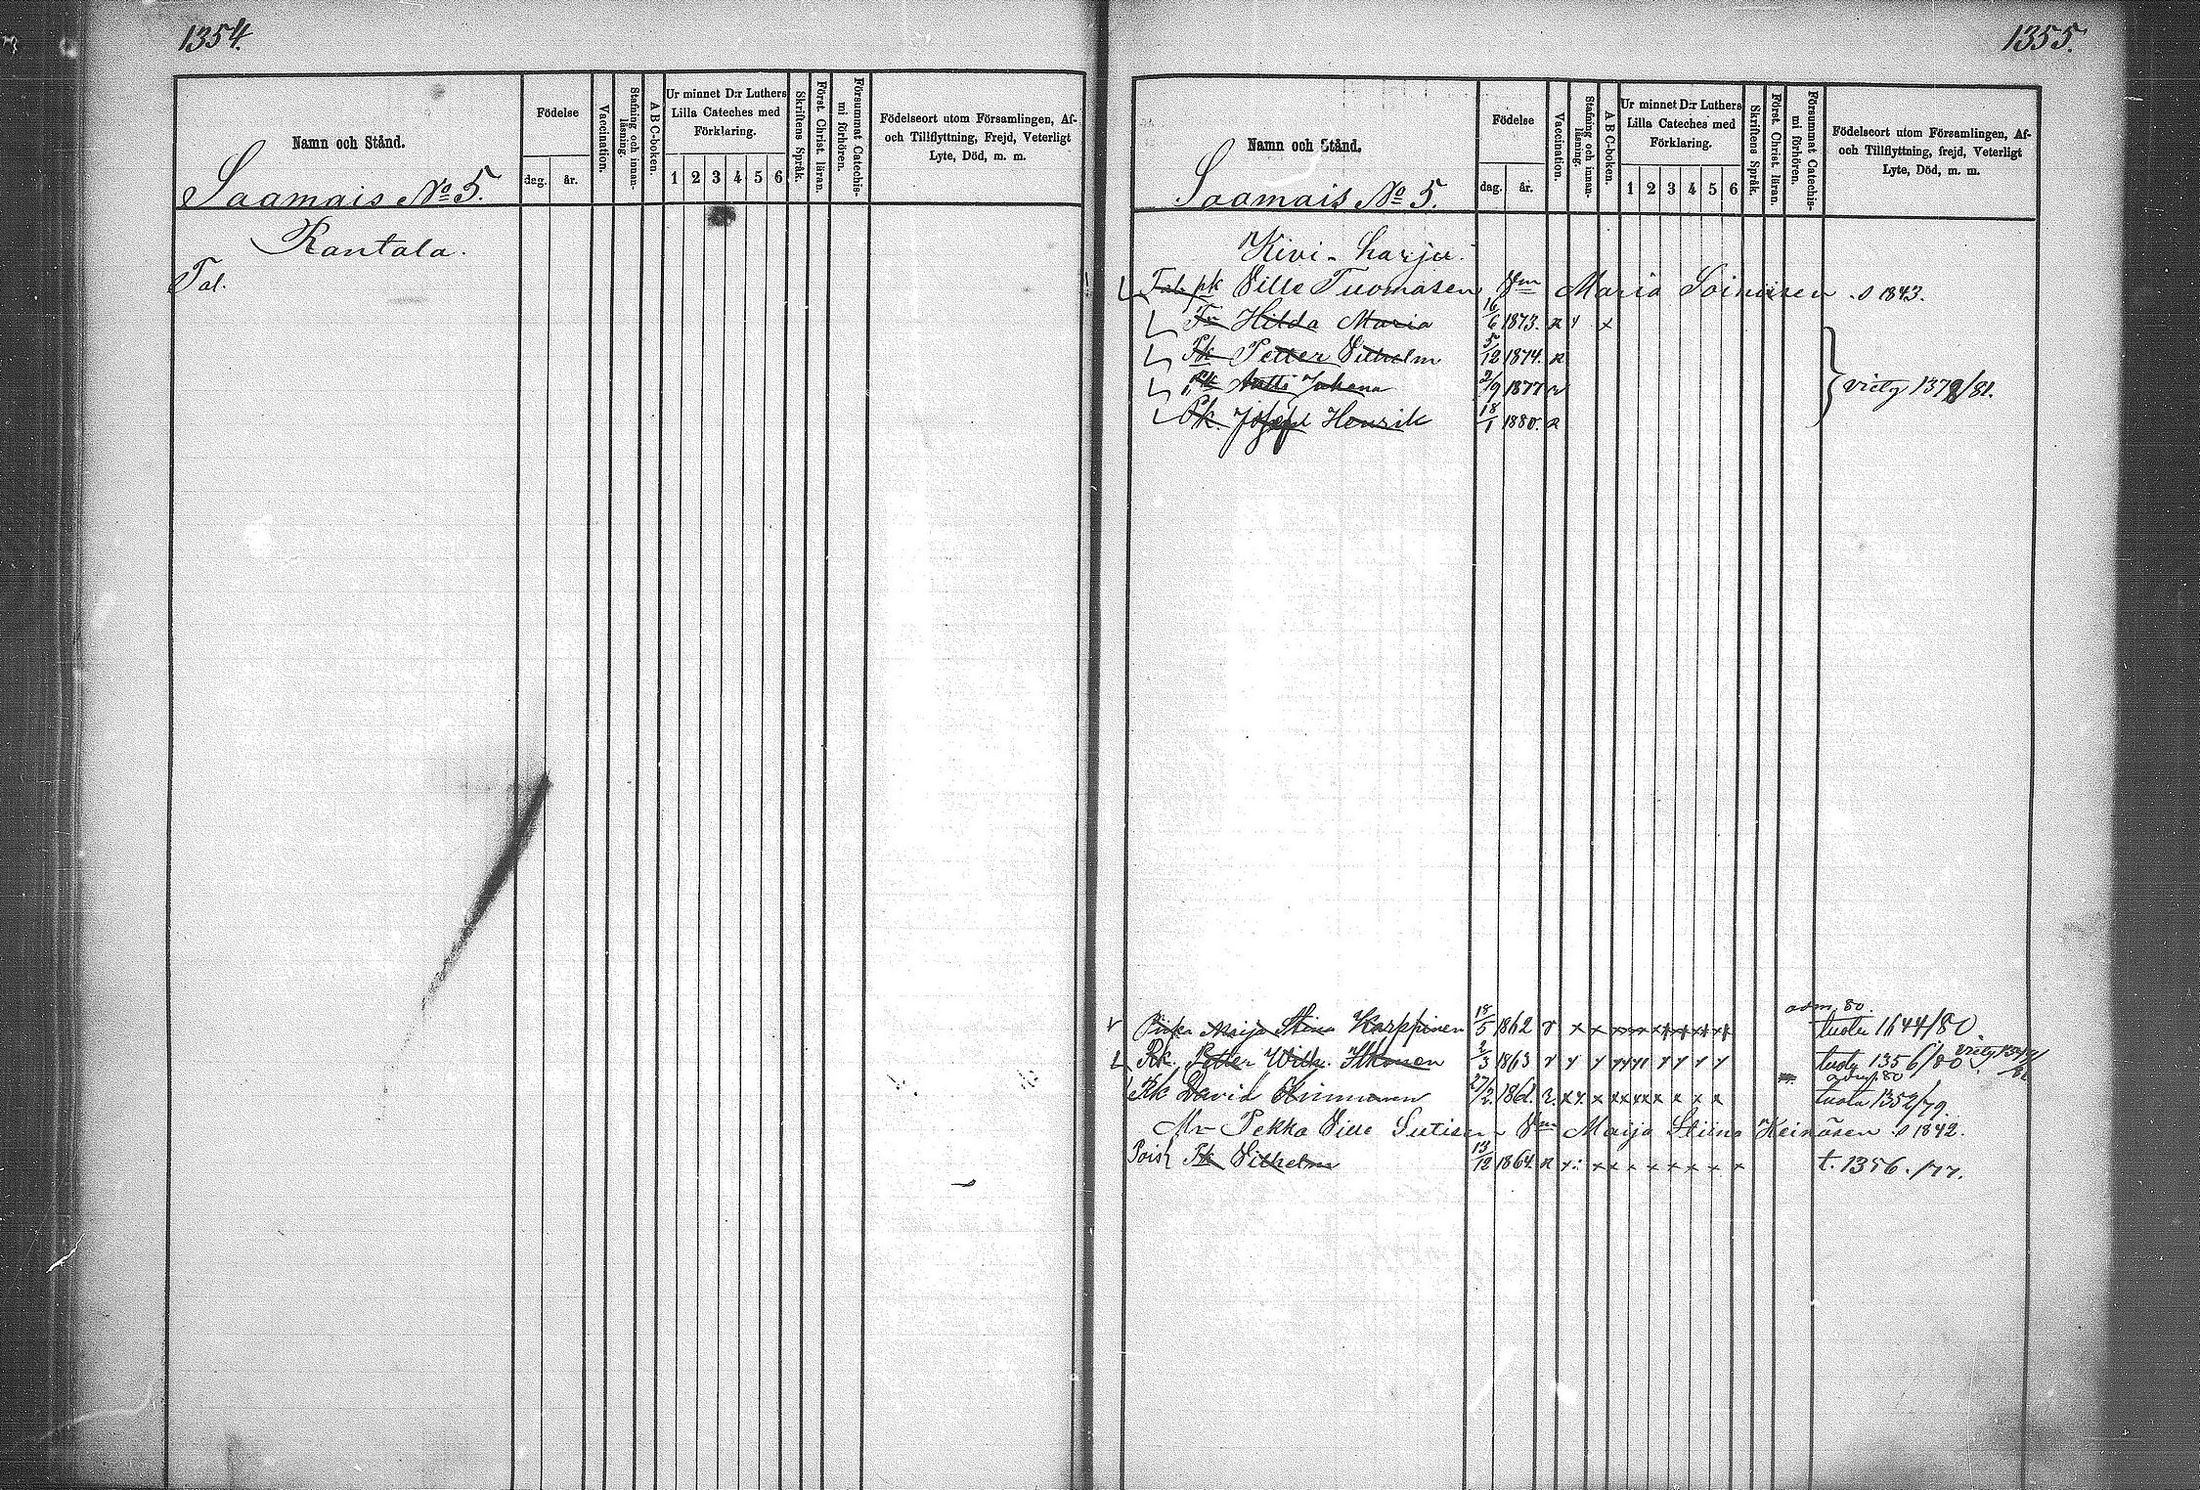 1354.
Namn och Stånd.
Födelse
dag. år.
Vaccination.
Stafning och innan-läsning.
A B C-boken.
Ur minnet D:r Luthers Lilla Cateches med Förklaring.
1 2 3 4 5 6
Skriftens Språk.
Först. Christ. läran.
Försummat Catechis-mi förhören.
Födelseort utom Församlingen, Af-
och Tillflyttning, Frejd, Veterligt
Lyte, Död, m. m.
Saamais No 5.
Rantala.
Tal.
1355.
Namn och Stånd.
Födelse
dag. år.
Vaccination.
Stafning och innan-läsning.
A B C-boken.
Ur minnet D:r Luthers Lilla Cateches med Förklaring.
1 2 3 4 5 6
Skriftens Språk.
Först. Christ. läran.
Försummat Catechis-mi förhören.
Födelseort utom Församlingen, Af-
och Tillflyttning, frejd, Veterligt
Lyte, Död, m. m.
Saamais No 5.
Kivi-harju.
pk Ville Tuomasen Vm Maria Soinisen s 1843.
Tr Hilda Maria 16/6 1873.
Pk Petter Vilhelm 5/12 1874.
Pk Antti Juhana 2/9 1877
Pk. Josef Henrik 18/1 1880.
viety 1372/81.
Piika Maija Stina Karppinen 18/5 1862 adm. 80. tuotu 1644/80
Rk. Petter Wilh. Ikonen 2/3 1863 tuotu 1356/80
Rk David 27/2 186 adm. 80 tuotu 1352/79.
Mr Pekka Ville Sutisen Vm Maija Stiina Heinäsen s 1842.
Pois Pk Vilhelm 13/12 1864 t. 1356./77.